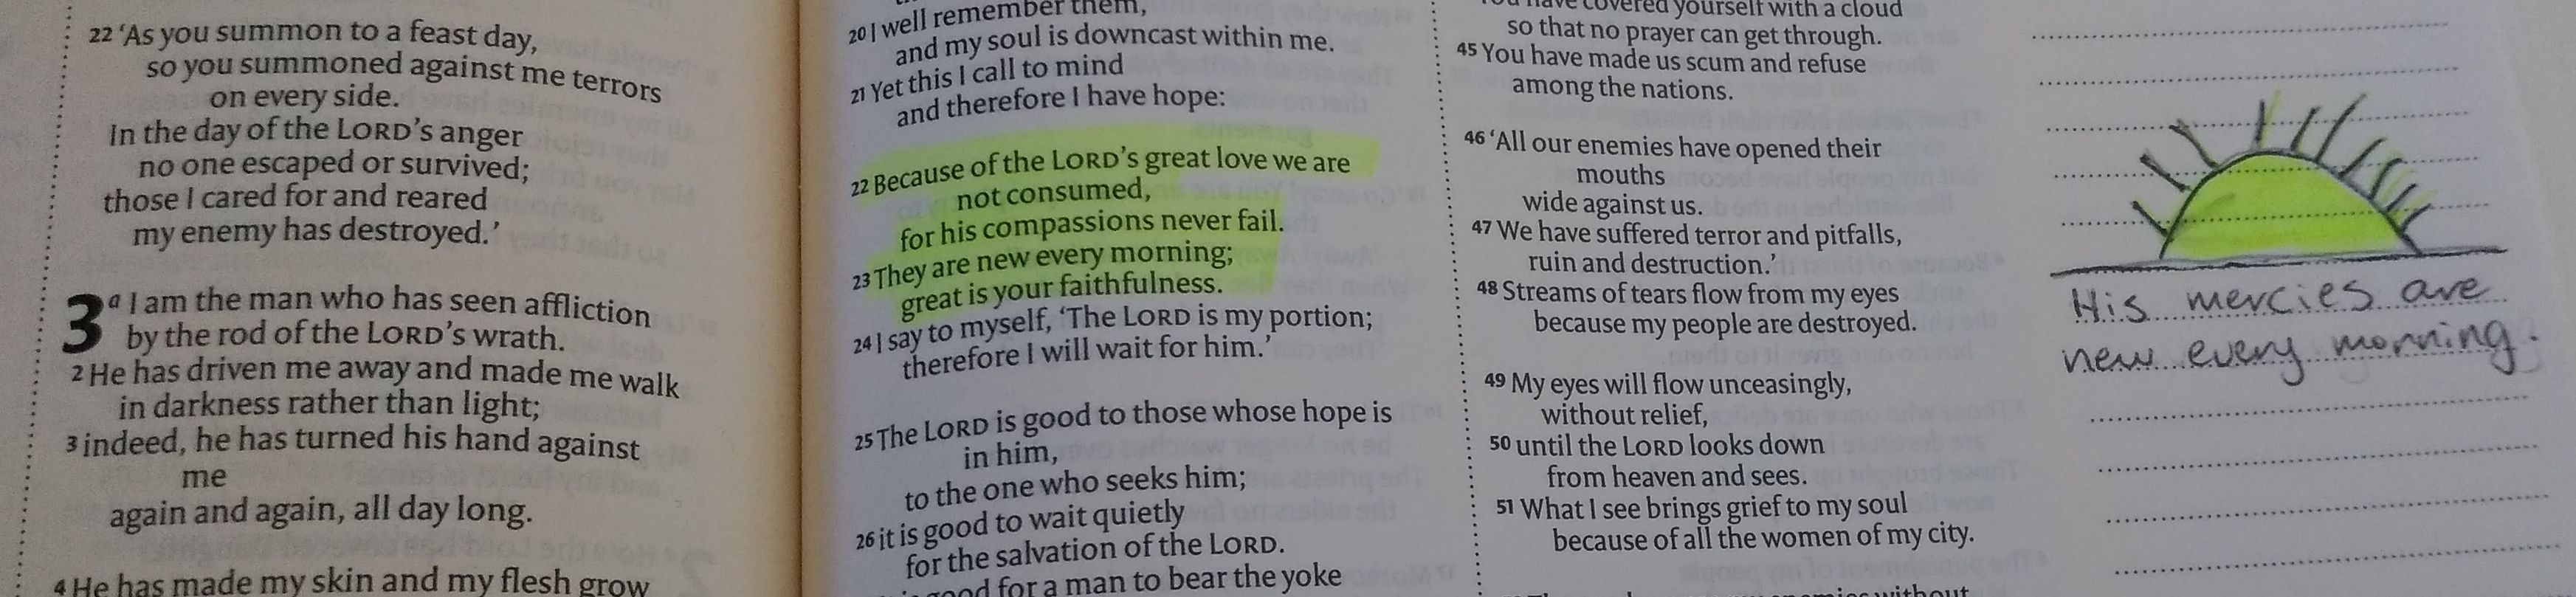 22 ‘As you summon to a feast day,
so you summoned against me terrors
on every side.
In the day of the LORD’s anger
no one escaped or survived;
those I cared for and reared
my enemy has destroyed.’
3 a I am the man who has seen affliction
by the rod of the LORD’s wrath.
2 He has driven me away and made me walk
in darkness rather than light;
3 indeed, he has turned his hand against
me
again and again, all day long.
4 He has made my skin and my flesh grow
20 I well remember them,
and my soul is downcast within me.
21 Yet this I call to mind
and therefore I have hope:
22 Because of the LORD’s great love we are
not consumed,
for his compassions never fail.
23 They are new every morning;
great is your faithfulness.
24 I say to myself, ‘The LORD is my portion;
therefore I will wait for him.’
25 The LORD is good to those whose hope is
in him,
to the one who seeks him;
26 it is good to wait quietly
for the salvation of the LORD.
good for a man to bear the yoke
have covered yourself with a cloud
so that no prayer can get through.
45 You have made us scum and refuse
among the nations.
46 ‘All our enemies have opened their
mouths
wide against us.
47 We have suffered terror and pitfalls,
ruin and destruction.’
48 Streams of tears flow from my eyes
because my people are destroyed.
49 My eyes will flow unceasingly,
without relief,
50 until the LORD looks down
from heaven and sees.
51 What I see brings grief to my soul
because of all the women of my city.
without
His mercies are
new every morning.